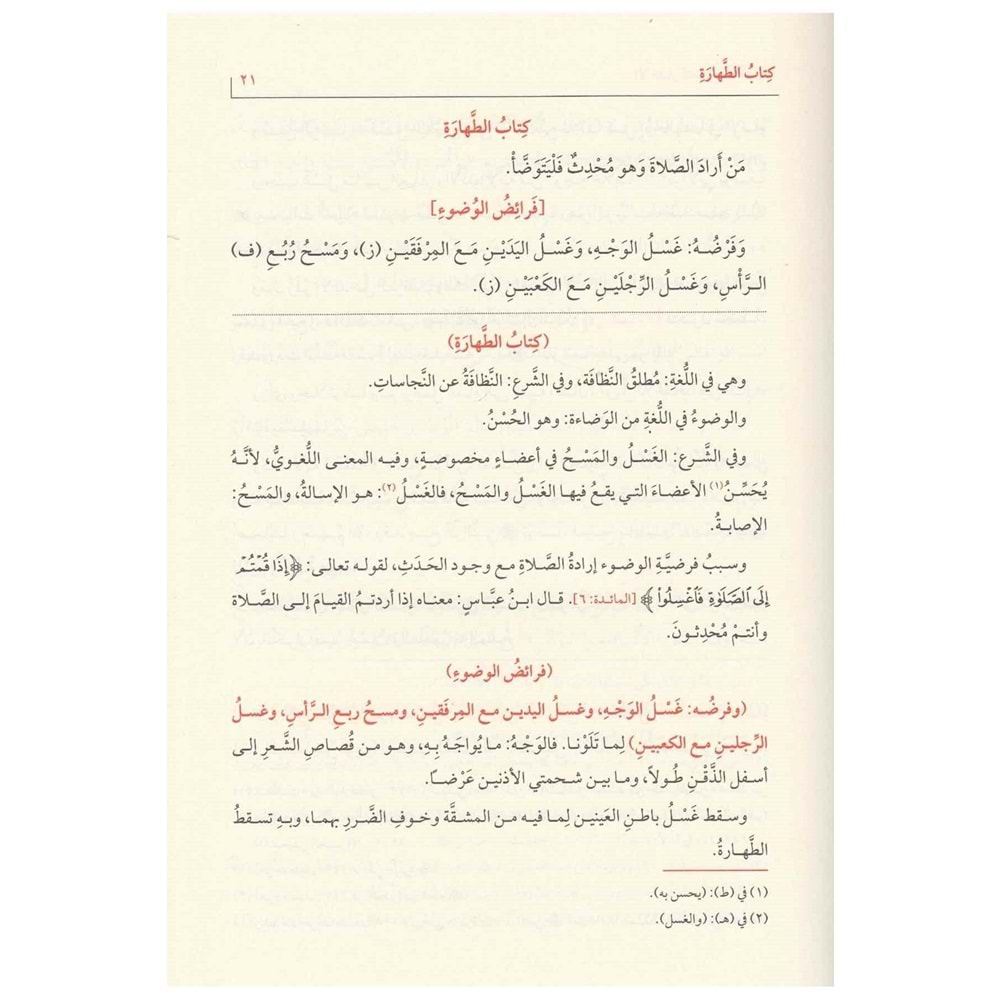 كِتابُ الطَّهارَةِ
٢١
كِتابُ الطَّهارَةِ
مَنْ أَرادَ الصَّلاةَ وَهو مُحْدِثٌ فَلْيَتَوَضَّأْ.
[فَرائِضُ الوُضوءِ]
وَفَرْضُهُ: غَسْلُ الوَجْهِ، وَغَسْلُ اليَدَيْنِ مَعَ المِرْفَقَيْنِ (ز)، وَمَسْحُ رُبُعِ (ف)
الرَّأْسِ، وَغَسْلُ الرِّجْلَيْنِ مَعَ الكَعْبَيْنِ (ز).
(كِتابُ الطَّهارَةِ)
وهي في اللُّغةِ: مُطلقُ النَّظافَة، وفي الشَّرعِ: النَّظافَةُ عن النَّجاساتِ.
والوضوءُ في اللُّغةِ من الوَضاءة: وهو الحُسْنُ.
وفي الشَّرع: الغَسْلُ والمَسْحُ في أعضاءٍ مخصوصةٍ، وفيه المعنى اللُّغويُّ، لأنَّهُ
يُحَسِّنُ(١) الأعضاءَ التي يقعُ فيها الغَسْلُ والمَسْحُ، فالغَسْلُ(٢): هو الإسالةُ، والمَسْحُ:
الإصابةُ.
وسببُ فرضيَّةِ الوضوء إرادةُ الصَّلاةِ مع وجود الحَدَثِ، لقوله تعالى: ﴿إِذَا قُمْتُمْ
إِلَى الصَّلَوٰةِ فَاغْسِلُوا۟﴾ [المائدة: ٦]. قال ابنُ عبَّاسٍ: معناه إذا أردتمُ القيامَ إلى الصَّلاة
وأنتمْ مُحْدِثونَ.
(فرائضُ الوضوءِ)
(وفرضُه: غَسْلُ الوَجْهِ، وغسلُ اليدينِ مع المِرفَقينِ، ومسحُ ربعِ الرَّأسِ، وغسلُ
الرِّجلينِ مع الكعبينِ) لِما تَلَوْنا. فالوَجْهُ: ما يُواجَهُ بِهِ، وهو من قُصاصِ الشَّعرِ إلى
أسفل الذَّقْنِ طُولاً، وما بين شحمتي الأذنين عَرْضاً.
وسقط غَسْلُ باطنِ العَينينِ لِما فيه من المشقَّة وخوفِ الضَّررِ بهما، وبهِ تسقطُ
الطَّهارةُ.
(١) في (ط): (يحسن به).
(٢) في (هـ): (والغسل).